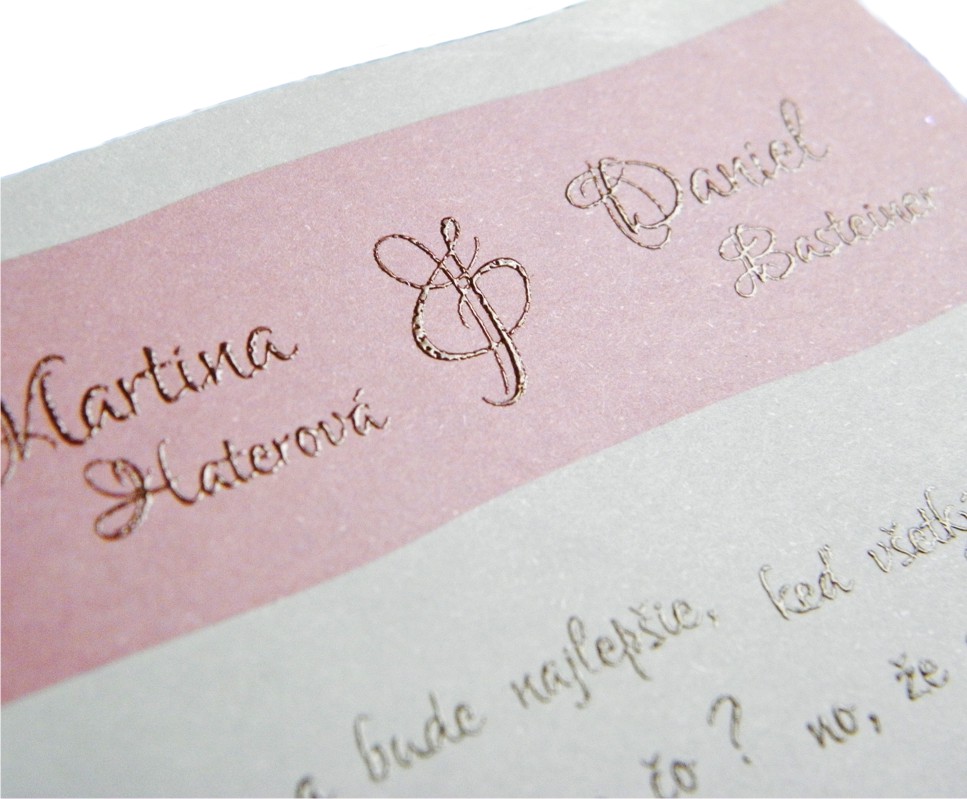 Martina
Haterová
&
Daniel
Basteiner
a bude najlepšie, keď všetk
čo? no, že